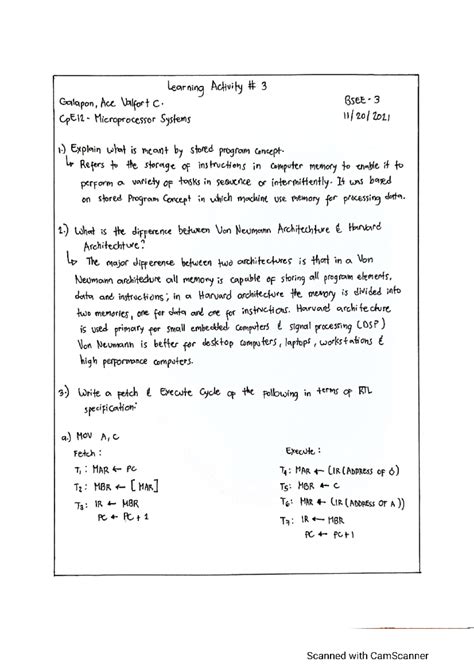 Learning Activity # 3
Galapon, Ace Valfort C. BSEE - 3
CpE12 - Microprocessor Systems 11/20/2021
1.) Explain what is meant by stored program concept.
↳ Refers to the storage of instructions in computer memory to enable it to
perform a variety of tasks in sequence or intermittently. It was based
on stored Program Concept in which machine use memory for processing data.
2.) What is the difference between Von Neumann Architechture & Harvard
Architechture?
↳ The major difference between two architectures is that in a Von
Neumann architecture all memory is capable of storing all program elements,
data and instructions; in a Harvard architecture the memory is divided into
two memories, one for data and one for instructions. Harvard architecture
is used primary for small embedded computers & signal processing (DSP)
Von Neumann is better for desktop computers, laptops, workstations &
high performance computers.
3.) Write a fetch & Execute Cycle of the following in terms of RTL
specification:
a.) MOV A, C
Fetch : Execute :
T₁ : MAR ← PC T₄ : MAR ← (IR (ADDRESS OF 6)
T₂ : MBR ← [MAR] T₅ : MBR ← C
T₃ : IR ← MBR T₆ : MAR ← (IR (ADDRESS OF A))
PC ← PC + 1 T₇ : IR ← MBR
PC ← PC + 1
Scanned with CamScanner